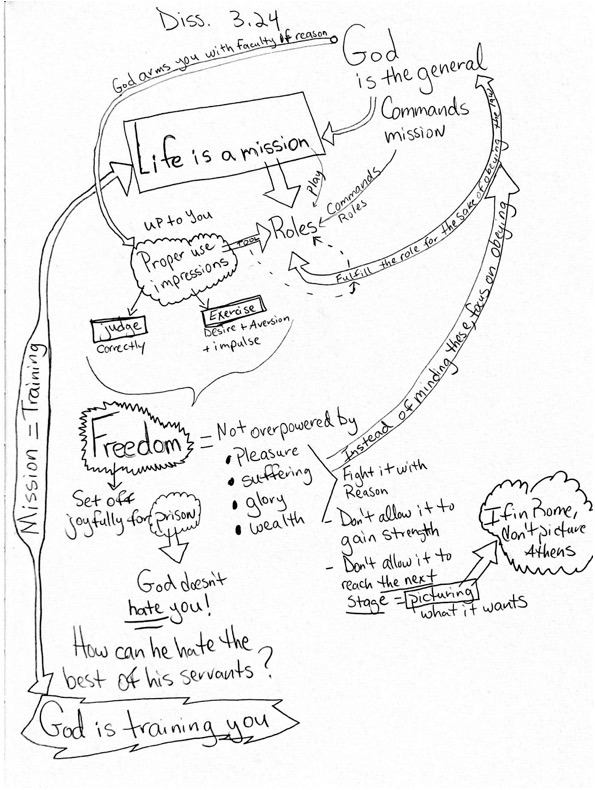 Diss. 3.24
God arms you with faculty of reason
God
is the general
Commands
mission
Life is a mission
play
Commands
Roles
up to you
Roles
Proper use
impressions
Tool
Fulfill the role for the sake of obeying the general
Judge
Correctly
Exercise
Desire + Aversion
+ impulse
Mission = Training
Instead of minding these, focus on obeying
Freedom
= Not overpowered by
• Pleasure
• suffering
• glory
• wealth
Fight it with
Reason
- Don't allow it to
gain strength
- Don't allow it to
reach the next
stage = picturing
what it wants
If in Rome,
don't picture
Athens
Set off
joyfully for prison
God doesn't
hate you!
How can he hate the
best of his servants?
God is training you